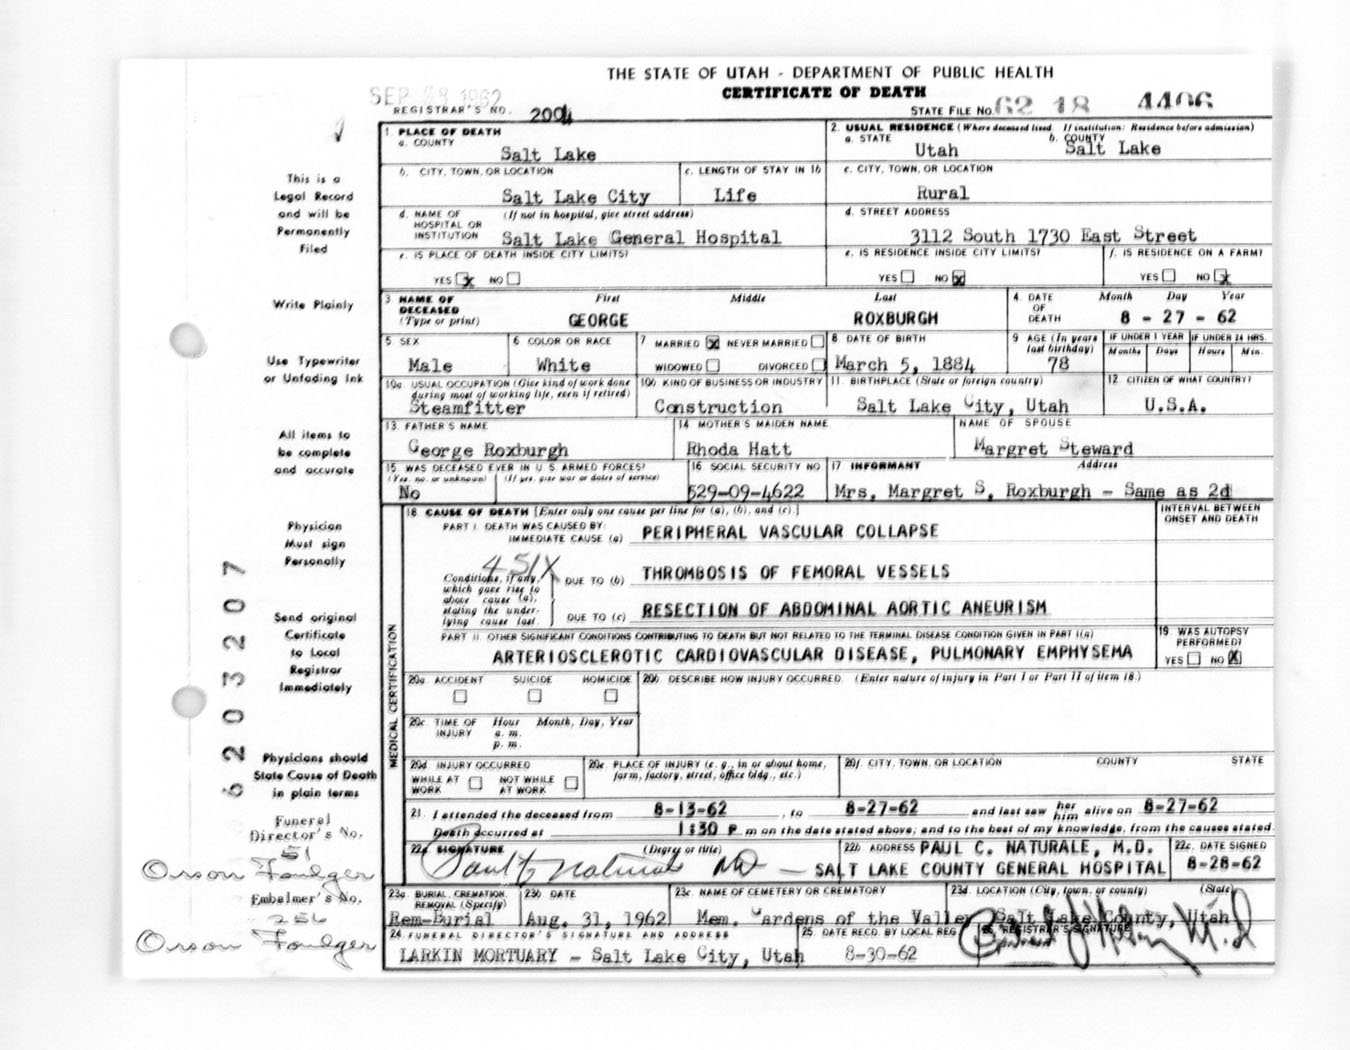 THE STATE OF UTAH - DEPARTMENT OF PUBLIC HEALTH
CERTIFICATE OF DEATH
SEP 28 1962
REGISTRAR'S NO. 2004
STATE FILE NO. 62 18 4406
This is a
Legal Record
and will be
Permanently
Filed
Write Plainly
Use Typewriter
or Unfading Ink
All items to
be complete
and accurate
Physician
Must sign
Personally
Send original
Certificate
to Local
Registrar
Immediately
Physicians should
State Cause of Death
in plain terms
Funeral
Director's No.
51
Orson Foulger
Embalmer's No.
256
Orson Foulger
6203207
1. PLACE OF DEATH
a. COUNTY
Salt Lake
2. USUAL RESIDENCE (Where deceased lived. If institution: Residence before admission)
a. STATE
Utah
b. COUNTY
Salt Lake
b. CITY, TOWN, OR LOCATION
Salt Lake City
c. LENGTH OF STAY IN 1b
Life
c. CITY, TOWN, OR LOCATION
Rural
d. NAME OF HOSPITAL OR INSTITUTION
(If not in hospital, give street address)
Salt Lake General Hospital
d. STREET ADDRESS
3112 South 1730 East Street
e. IS PLACE OF DEATH INSIDE CITY LIMITS?
YES x NO
e. IS RESIDENCE INSIDE CITY LIMITS?
YES NO x
f. IS RESIDENCE ON A FARM?
YES NO x
3 NAME OF DECEASED (Type or print)
First Middle Last
GEORGE ROXBURGH
4. DATE OF DEATH
Month Day Year
8 - 27 - 62
5. SEX
Male
6 COLOR OR RACE
White
7 MARRIED x NEVER MARRIED
WIDOWED DIVORCED
8 DATE OF BIRTH
March 5, 1884
9 AGE (In years last birthday)
78
IF UNDER 1 YEAR
Months Days
IF UNDER 24 HRS.
Hours Min.
10a. USUAL OCCUPATION (Give kind of work done during most of working life, even if retired)
Steamfitter
10b. KIND OF BUSINESS OR INDUSTRY
Construction
11. BIRTHPLACE (State or foreign country)
Salt Lake City, Utah
12 CITIZEN OF WHAT COUNTRY?
U.S.A.
13. FATHER'S NAME
George Roxburgh
14 MOTHER'S MAIDEN NAME
Rhoda Hatt
NAME OF SPOUSE
Margret Steward
15. WAS DECEASED EVER IN U.S. ARMED FORCES?
(Yes, no, or unknown) (If yes, give war or dates of service)
No
16 SOCIAL SECURITY NO
529-09-4622
17 INFORMANT Address
Mrs. Margret S. Roxburgh - Same as 2d
MEDICAL CERTIFICATION
18 CAUSE OF DEATH [Enter only one cause per line for (a), (b), and (c).]
INTERVAL BETWEEN ONSET AND DEATH
PART I. DEATH WAS CAUSED BY:
IMMEDIATE CAUSE (a) PERIPHERAL VASCULAR COLLAPSE
451X
Conditions, if any, which gave rise to above cause (a), stating the underlying cause last.
DUE TO (b) THROMBOSIS OF FEMORAL VESSELS
DUE TO (c) RESECTION OF ABDOMINAL AORTIC ANEURISM
PART II. OTHER SIGNIFICANT CONDITIONS CONTRIBUTING TO DEATH BUT NOT RELATED TO THE TERMINAL DISEASE CONDITION GIVEN IN PART I(a)
ARTERIOSCLEROTIC CARDIOVASCULAR DISEASE, PULMONARY EMPHYSEMA
19 WAS AUTOPSY PERFORMED?
YES NO X
20a. ACCIDENT SUICIDE HOMICIDE
20b. DESCRIBE HOW INJURY OCCURRED. (Enter nature of injury in Part I or Part II of item 18.)
20c. TIME OF INJURY
Hour Month, Day, Year
a. m.
p. m.
20d. INJURY OCCURRED
WHILE AT WORK NOT WHILE AT WORK
20e. PLACE OF INJURY (e. g., in or about home, farm, factory, street, office bldg., etc.)
20f. CITY, TOWN, OR LOCATION COUNTY STATE
21. I attended the deceased from 8-13-62, to 8-27-62 and last saw her him alive on 8-27-62
Death occurred at 1:30 P m on the date stated above; and to the best of my knowledge, from the causes stated
22a. SIGNATURE (Degree or title)
Paul C Naturale MD
22b. ADDRESS PAUL C. NATURALE, M.D.
— SALT LAKE COUNTY GENERAL HOSPITAL
22c. DATE SIGNED
8-28-62
23a. BURIAL, CREMATION, REMOVAL (Specify)
Rem-Burial
23b DATE
Aug. 31, 1962
23c. NAME OF CEMETERY OR CREMATORY
Mem. Gardens of the Valley
23d. LOCATION (City, town, or county) (State)
Salt Lake County, Utah
24. FUNERAL DIRECTOR'S SIGNATURE AND ADDRESS
LARKIN MORTUARY - Salt Lake City, Utah
25. DATE RECD. BY LOCAL REG.
8-30-62
26. REGISTRAR'S SIGNATURE